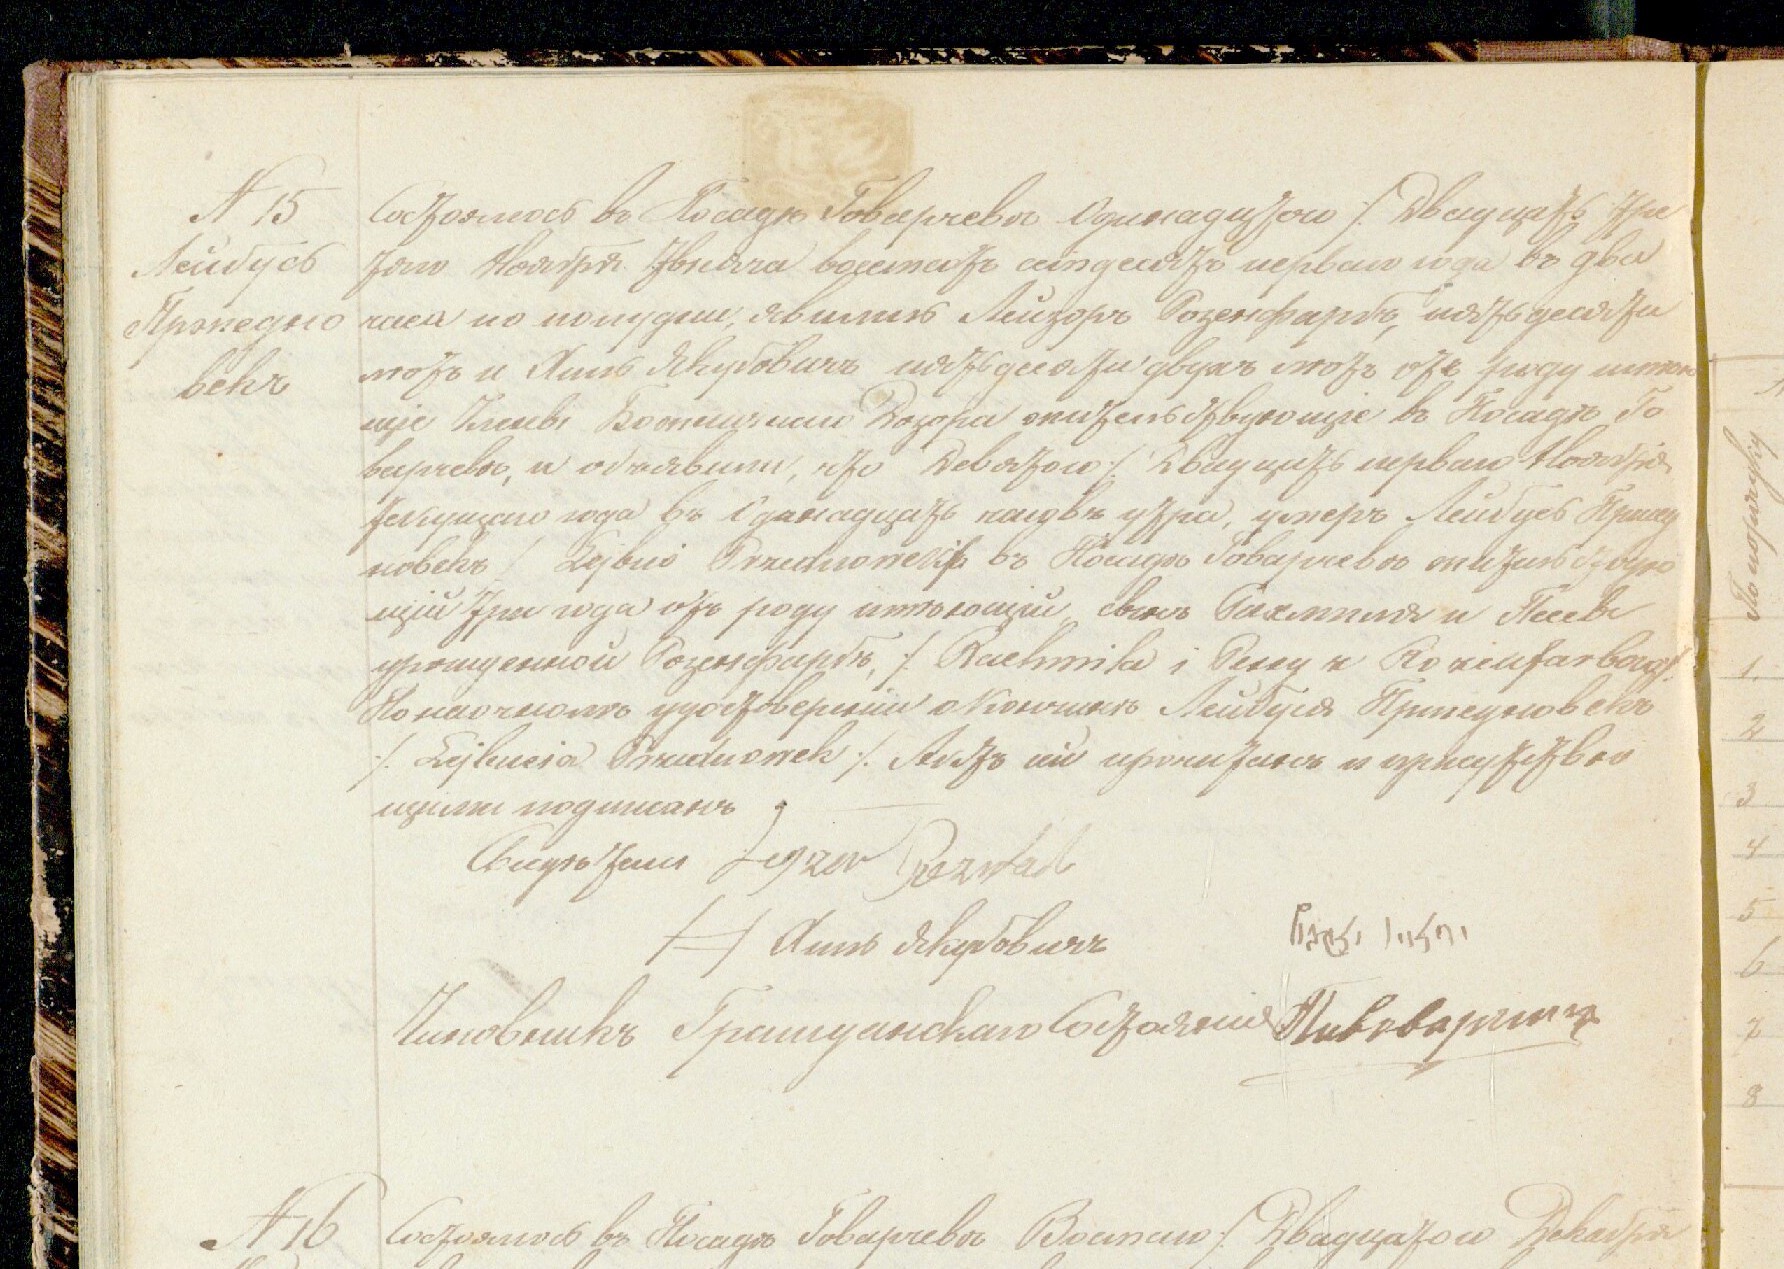 N 15
Лейбусь
Пржедно
векъ
Состоялось въ Посадѣ Говарчевѣ Одинадцатаго /: Двадцать тре
тяго Ноября тысяча восемсотъ семдесятъ перваго года въ два
часа по полудни, явились Лейзоръ Розенфарбъ, пятьдесяти
лѣтъ и Якубовичъ пятьдесяти двухъ лѣтъ отъ роду имѣю
щіе Члены Божничнаго Дозора жительствующіе въ Посадѣ Го
варчевѣ, и объявили, что Девятаго /: Двадцать перваго Ноября
текущаго года въ Одинадцать часовъ утра, умеръ Лейбусь Пржед
новекъ /: Lejbus въ Посадѣ Говарчевѣ жительствую
щій три года отъ роду имѣющій, сынъ Рахмиля и
урожденной Розенфарбъ, /: Rachmila i
По наочномъ удостовереніи о Кончинѣ Лейбуся Пржедновекъ
/: Lejbusia Przednowek /: Актъ сей прочитанъ и присутствую
щими подписанъ
Свидѣтели Leyzor
Якубовичъ
Чиновникъ Гражданскаго Состоянія
N 16
Состоялось въ Посадѣ Говарчевѣ Восмаго /: Двадцатаго Декабря
По порядку
1.
2
3
4
5
6
7
8